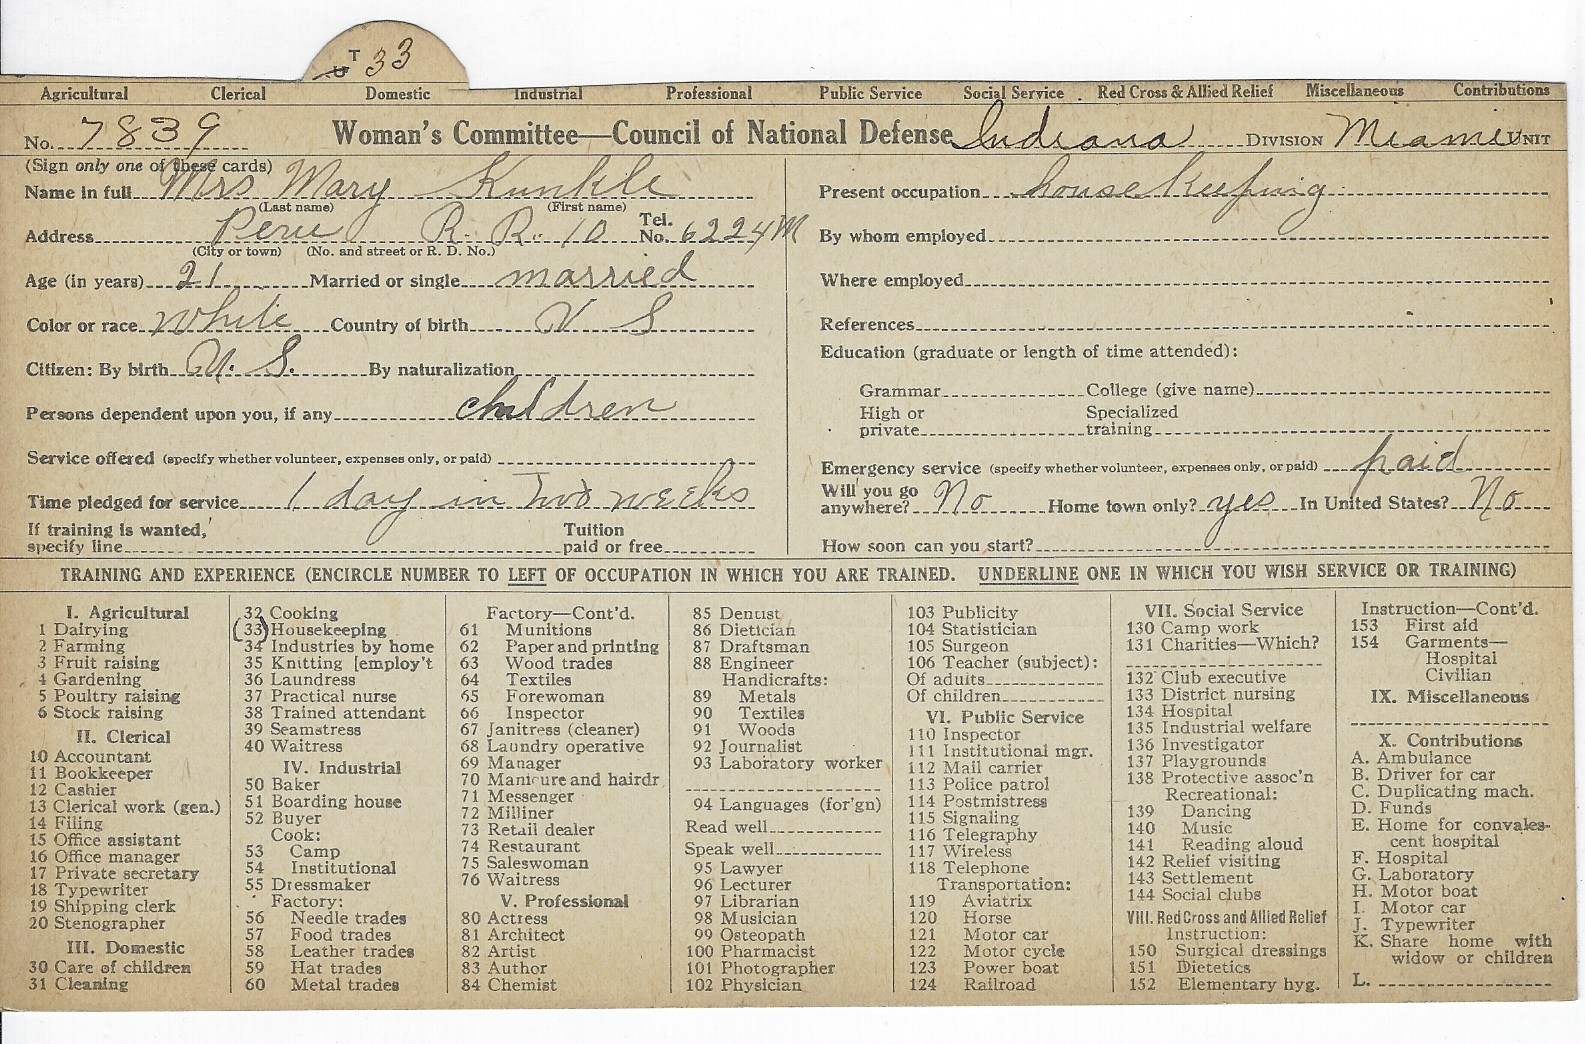 T 33
Agricultural Clerical Domestic Industrial Professional Public Service Social Service Red Cross & Allied Relief Miscellaneous Contributions
No. 7839 Woman's Committee—Council of National Defense Indiana DIVISION Miami UNIT
(Sign only one of these cards)
Name in full Mrs Mary Kunkle
(Last name) (First name)
Address Peru R. R. 10 Tel. No. 6224M
(City or town) (No. and street or R. D. No.)
Age (in years) 21 Married or single married
Color or race White Country of birth U S
Citizen: By birth U. S. By naturalization
Persons dependent upon you, if any children
Service offered (specify whether volunteer, expenses only, or paid)
Time pledged for service 1 day in Two weeks
If training is wanted, specify line Tuition paid or free
Present occupation housekeeping
By whom employed
Where employed
References
Education (graduate or length of time attended):
Grammar College (give name)
High or private Specialized training
Emergency service (specify whether volunteer, expenses only, or paid) paid
Will you go anywhere? No Home town only? yes In United States? No
How soon can you start?
TRAINING AND EXPERIENCE (ENCIRCLE NUMBER TO LEFT OF OCCUPATION IN WHICH YOU ARE TRAINED. UNDERLINE ONE IN WHICH YOU WISH SERVICE OR TRAINING)
I. Agricultural
1 Dairying
2 Farming
3 Fruit raising
4 Gardening
5 Poultry raising
6 Stock raising
II. Clerical
10 Accountant
11 Bookkeeper
12 Cashier
13 Clerical work (gen.)
14 Filing
15 Office assistant
16 Office manager
17 Private secretary
18 Typewriter
19 Shipping clerk
20 Stenographer
III. Domestic
30 Care of children
31 Cleaning
32 Cooking
(33) Housekeeping
34 Industries by home
35 Knitting [employ't
36 Laundress
37 Practical nurse
38 Trained attendant
39 Seamstress
40 Waitress
IV. Industrial
50 Baker
51 Boarding house
52 Buyer
Cook:
53 Camp
54 Institutional
55 Dressmaker
Factory:
56 Needle trades
57 Food trades
58 Leather trades
59 Hat trades
60 Metal trades
Factory—Cont'd.
61 Munitions
62 Paper and printing
63 Wood trades
64 Textiles
65 Forewoman
66 Inspector
67 Janitress (cleaner)
68 Laundry operative
69 Manager
70 Manicure and hairdr.
71 Messenger
72 Milliner
73 Retail dealer
74 Restaurant
75 Saleswoman
76 Waitress
V. Professional
80 Actress
81 Architect
82 Artist
83 Author
84 Chemist
85 Dentist
86 Dietician
87 Draftsman
88 Engineer
Handicrafts:
89 Metals
90 Textiles
91 Woods
92 Journalist
93 Laboratory worker
94 Languages (for'gn)
Read well
Speak well
95 Lawyer
96 Lecturer
97 Librarian
98 Musician
99 Osteopath
100 Pharmacist
101 Photographer
102 Physician
103 Publicity
104 Statistician
105 Surgeon
106 Teacher (subject):
Of adults
Of children
VI. Public Service
110 Inspector
111 Institutional mgr.
112 Mail carrier
113 Police patrol
114 Postmistress
115 Signaling
116 Telegraphy
117 Wireless
118 Telephone
Transportation:
119 Aviatrix
120 Horse
121 Motor car
122 Motor cycle
123 Power boat
124 Railroad
VII. Social Service
130 Camp work
131 Charities—Which?
132 Club executive
133 District nursing
134 Hospital
135 Industrial welfare
136 Investigator
137 Playgrounds
138 Protective assoc'n
Recreational:
139 Dancing
140 Music
141 Reading aloud
142 Relief visiting
143 Settlement
144 Social clubs
VIII. Red Cross and Allied Relief
Instruction:
150 Surgical dressings
151 Dietetics
152 Elementary hyg.
Instruction—Cont'd.
153 First aid
154 Garments—
Hospital
Civilian
IX. Miscellaneous
X. Contributions
A. Ambulance
B. Driver for car
C. Duplicating mach.
D. Funds
E. Home for convales-
cent hospital
F. Hospital
G. Laboratory
H. Motor boat
I. Motor car
J. Typewriter
K. Share home with
widow or children
L.